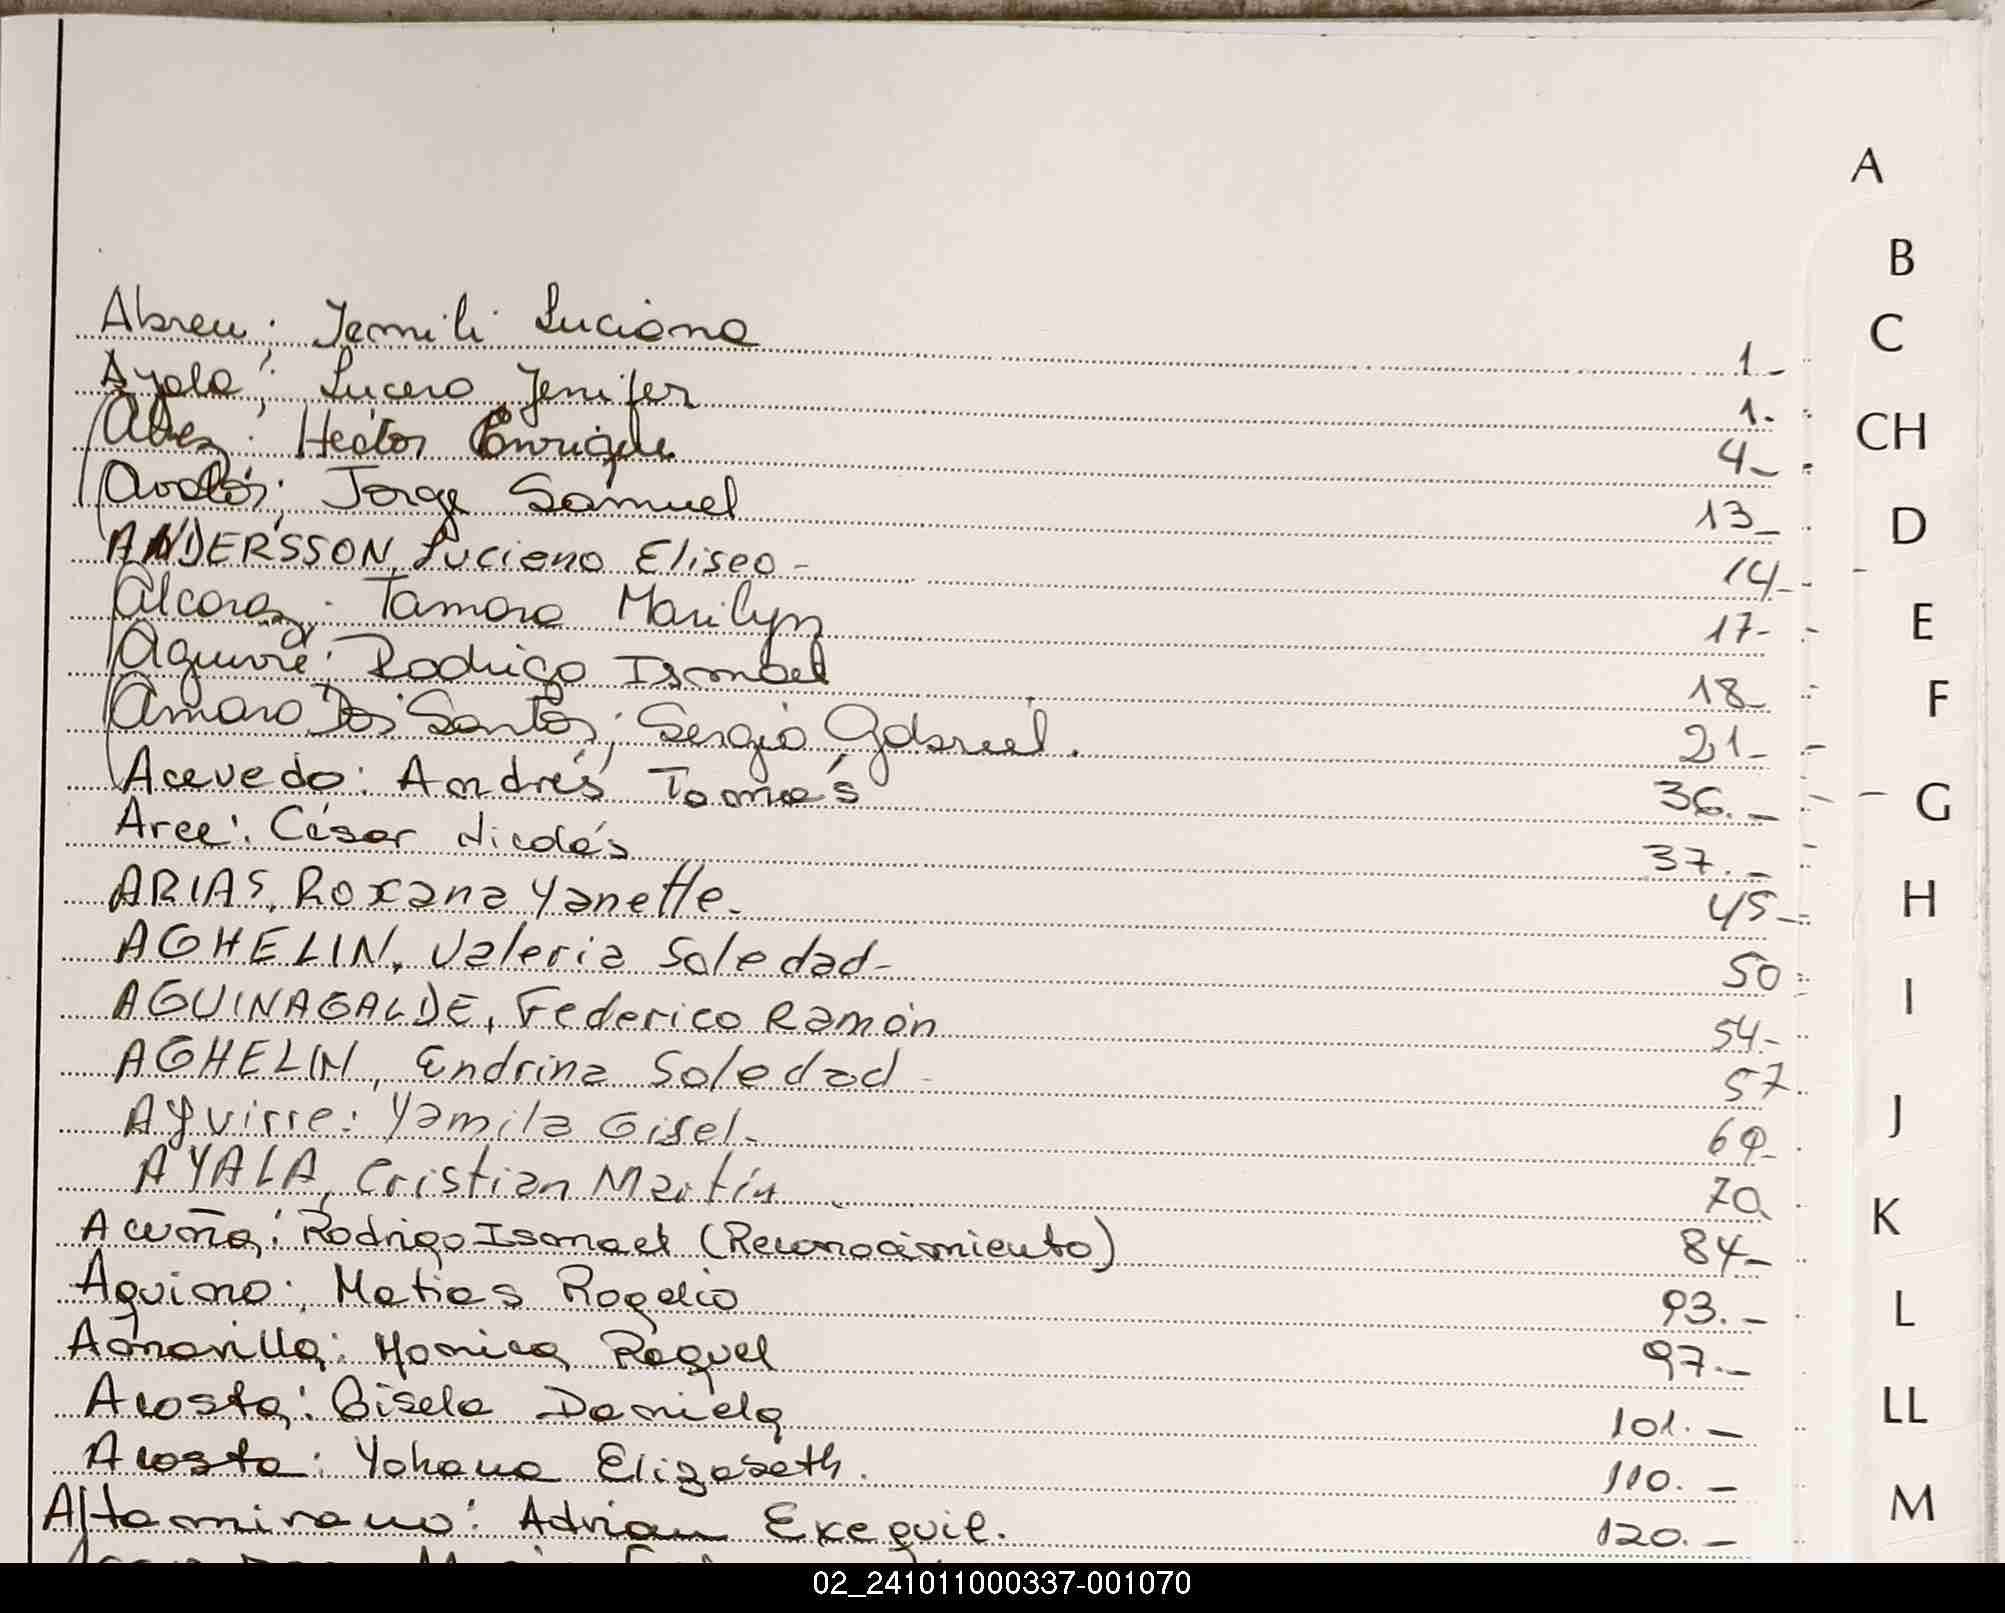 A
B
C
CH
D
E
F
G
H
I
J
K
L
LL
M
Abreu; Jemili Luciana 1_
Ayala; Lucero Jenifer 1.
Hector Enrique 4_
Avalos; Jorge Samuel 13_
ANDERSSON, Luciano Eliseo - 14.-
Alcaraz; Tamara Marilyn 17-
Aguirre; Rodrigo Ismael 18_
Amaro Dos Santos; Sergio Gabriel. 21_
Acevedo: Andrés Tomás 36._
Arce: César Nicolás 37._
ARIAS, Roxana Yanette. 45_
AGHELIN, Valeria Soledad- 50
AGUINAGALDE, Federico Ramón 54.-
AGHELIN, Endrina Soledad 57
Aguirre: Yamila Gisel. 69_
AYALA, Cristian Martín 70
Acuña: Rodrigo Ismael (Reconocimiento) 84_
Aquino: Matias Rogelio 93._
Amarilla: Monica Raquel 97._
Acosta: Gisela Daniela 101._
Acosta: Yohana Elizabeth. 110._
Altamirano: Adrian Exequiel. 120._
02_241011000337-001070